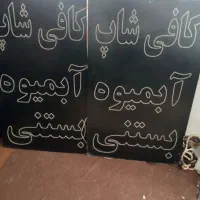 کافی شاپ
آبمیوه
بستنی
کافی شاپ
آبمیوه
بستنی